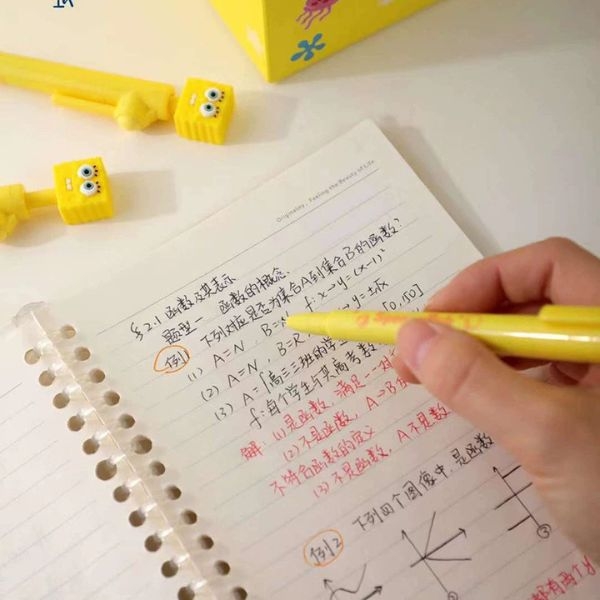 Originality, Feeling the Beauty of Life
§2.1 函数及其表示
题型一 函数的概念
例1 下列对应是否为集合A到集合B的函数?
(1) A=N, B= f:x→y=(x-1)²
(2) A=N, B=R, →y=±√x
(3) A={高三三班的学 [0,150]
f:每个学生与其高考数
解: (1)是函数, 满足一对
(2)不是函数, A→B
不符合函数的定义
(3)不是函数, A不是数
例2 下列四个图像中,是函数
① ③
都有两个y